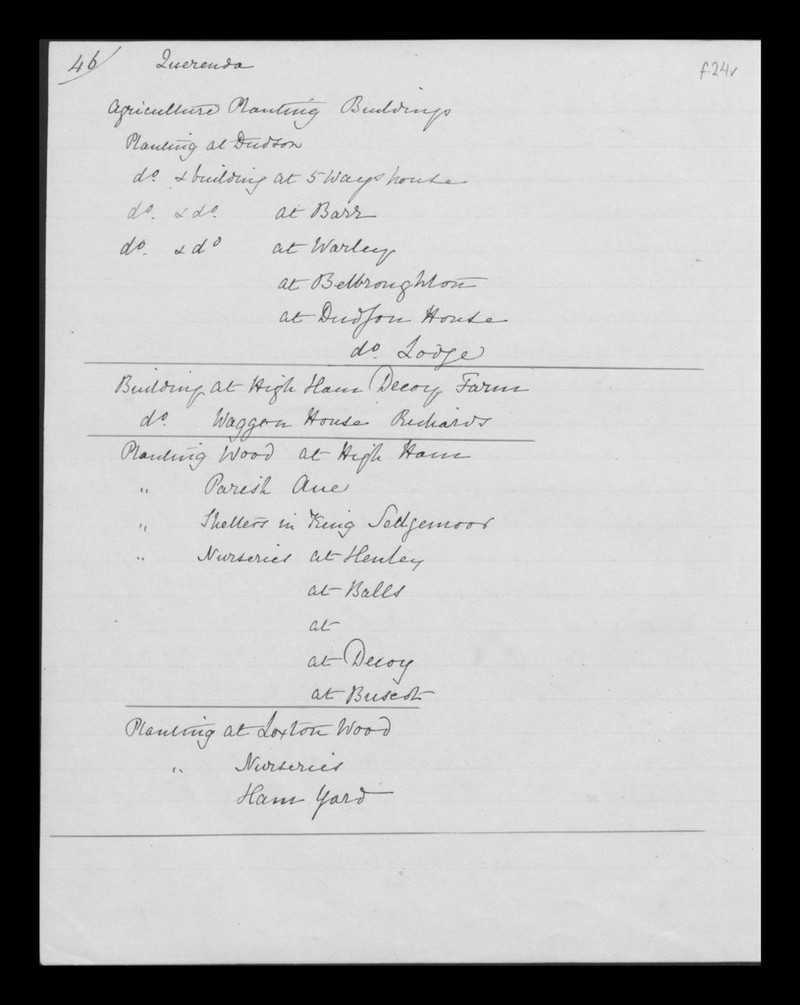 46/ Querenda f.24v
Agriculture Planting Buildings
Planting at Dudson
do. & building at 5 Ways house
do. & do. at Barr
do. & do at Warley
at Belbroughton
at Dudson House
do. Lodge
Building at High Ham Decoy Farm
do. Waggon House Richards
Planting Wood at High Ham
" Parish
" Shelters in King Sedgemoor
" Nurseries at Henley
at Balls
at
at Decoy
at Buscot
Planting at Loxton Wood
" Nurseries
Ham Yard